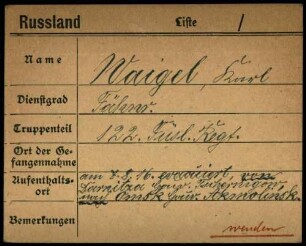 Russland Liste 1
Name Waigel, Karl
Dienstgrad Fähnr.
Truppenteil 122. Füsl. Regt.
Ort der Ge-
fangennahme
Aufenthalts-
ort
am 7. 8. 16. evacuiert,
nach Omsk Gouv. Akmolinsk.
Bemerkungen
wenden